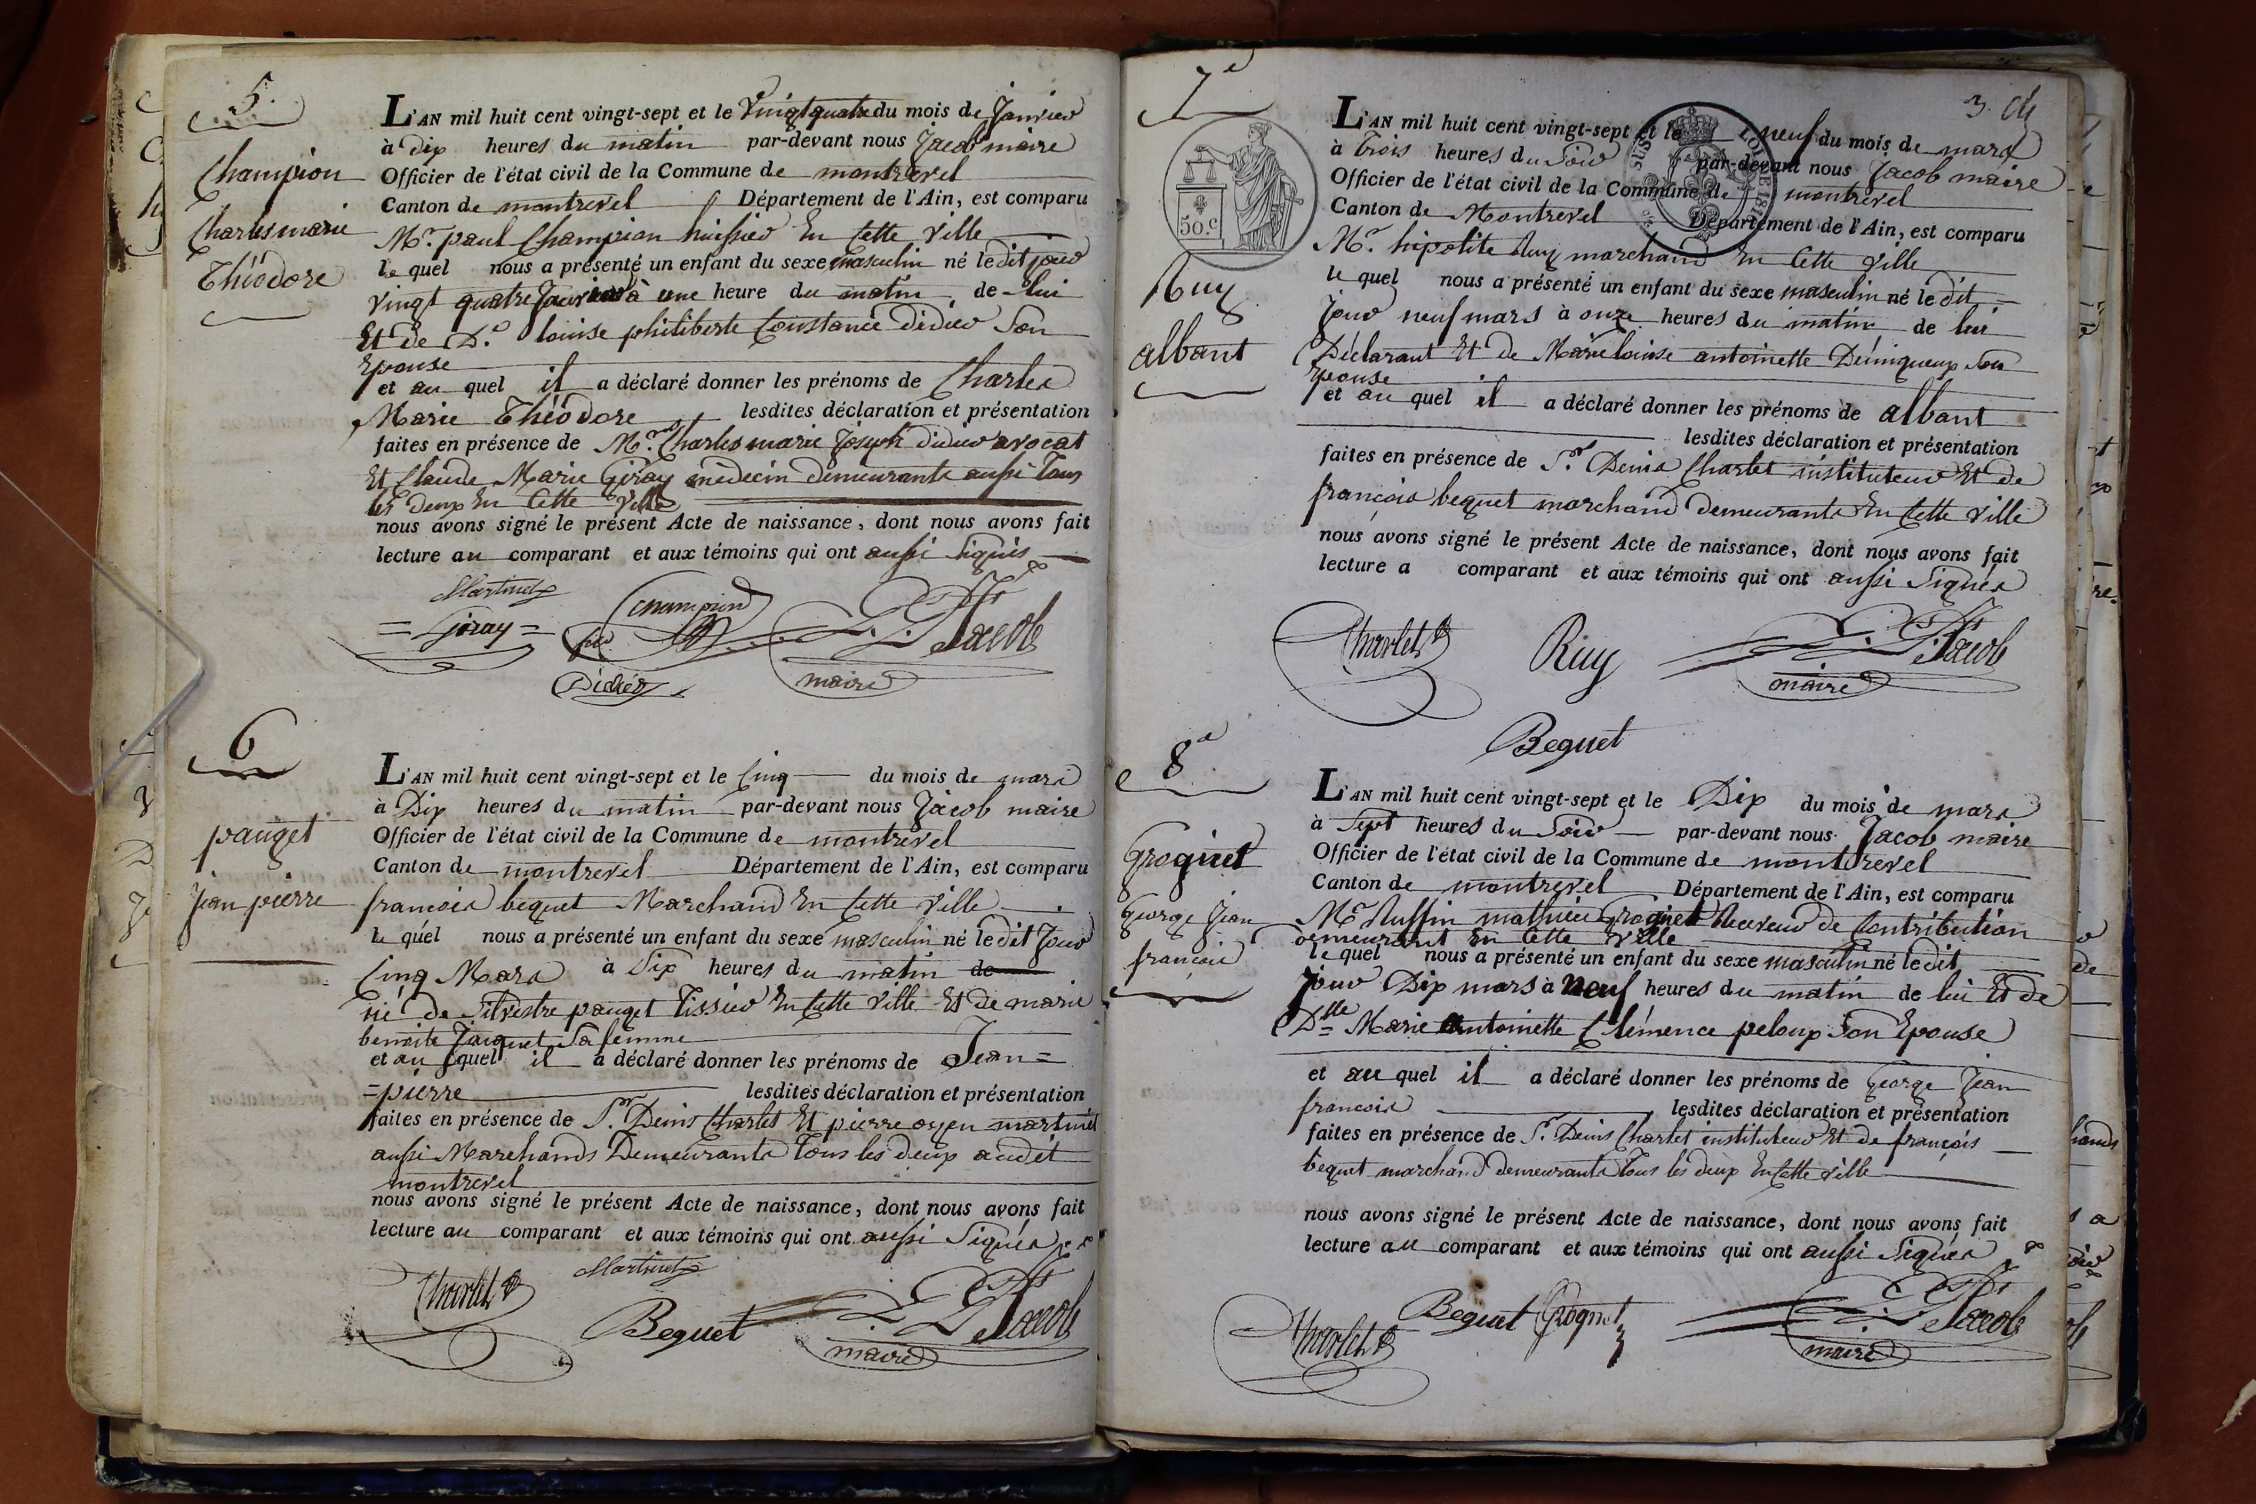 5.
Champion
Charles marie
Théodore
L'AN mil huit cent vingt-sept et le Vingt quatre du mois de Janvier
à Dix heures du matin par-devant nous Jacob maire
Officier de l'état civil de la Commune de montrevel
Canton de montrevel Département de l'Ain, est comparu
Mr. paul Champion huissier En Cette Ville
le quel nous a présenté un enfant du sexe masculin né le dit jour
vingt quatre Janvier à une heure du matin de lui
Et de De. louise philiberte Constance didier Son
Epouse
et au quel il a déclaré donner les prénoms de Charles
Marie Théodore lesdites déclaration et présentation
faites en présence de Mr. Charles marie Joseph didier avocat
Et Claude Marie Giray médecin demeurants aussi Tous
les deux En Cette Ville
nous avons signé le présent Acte de naissance, dont nous avons fait
lecture au comparant et aux témoins qui ont aussi Signés
Martinet
Giray Champion Jacob
Didier maire
6
pauget
Jean pierre
L'AN mil huit cent vingt-sept et le Cinq du mois de mars
à Dix heures du matin par-devant nous Jacob maire
Officier de l'état civil de la Commune de montrevel
Canton de montrevel Département de l'Ain, est comparu
francois bequet Marchand En Cette Ville
le quel nous a présenté un enfant du sexe masculin né le dit Jour
Cinq Mars à Six heures du matin de
né de Silvestre pauget Tissier En Cette Ville Et de marie
benoite Jaquet Sa femme
et au quel il a déclaré donner les prénoms de Jean=
=pierre lesdites déclaration et présentation
faites en présence de Sr. Denis Charlet Et pierre oyen martinet
aussi Marchands Demeurants Tous les deux audit
montrevel
nous avons signé le présent Acte de naissance, dont nous avons fait
lecture au comparant et aux témoins qui ont aussi Signés
Charlet Martinet
Bequet Jacob
maire
7e
3.
50.c
Ruy
albant
L'AN mil huit cent vingt-sept et le neuf du mois de mars
à Trois heures du Soir par-devant nous Jacob maire
Officier de l'état civil de la Commune de montrevel
Canton de Montrevel Département de l'Ain, est comparu
Mr. hipolite Ruy marchand En Cette Ville
le quel nous a présenté un enfant du sexe masculin né le dit
Jour neuf mars à onze heures du matin de lui
Déclarant Et de Marie louise antoinette Son
Epouse
et au quel il a déclaré donner les prénoms de albant
lesdites déclaration et présentation
faites en présence de Sr. Denis Charlet instituteur Et de
françois bequet marchand Demeurants En Cette Ville
nous avons signé le présent Acte de naissance, dont nous avons fait
lecture a comparant et aux témoins qui ont aussi Signés
Charlet Ruy Jacob
maire
Bequet
8e
Groquet
George Jean
françois
L'AN mil huit cent vingt-sept et le Dix du mois de mars
à Sept heures du Soir par-devant nous Jacob maire
Officier de l'état civil de la Commune de montrevel
Canton de montrevel Département de l'Ain, est comparu
Mr Ruffin mathieu Groquet Receveur de Contribution
demeurant En Cette Ville
le quel nous a présenté un enfant du sexe masculin né le dit
Jour Dix mars à Neuf heures du matin de lui Et de
Dlle Marie antoinette Clémence peloux Son Epouse
et au quel il a déclaré donner les prénoms de George Jean
francois lesdites déclaration et présentation
faites en présence de Sr. Denis Charlet instituteur Et de françois
bequet marchand demeurants Tous les deux En Cette Ville
nous avons signé le présent Acte de naissance, dont nous avons fait
lecture au comparant et aux témoins qui ont aussi Signés
Charlet Bequet Groquet Jacob
maire